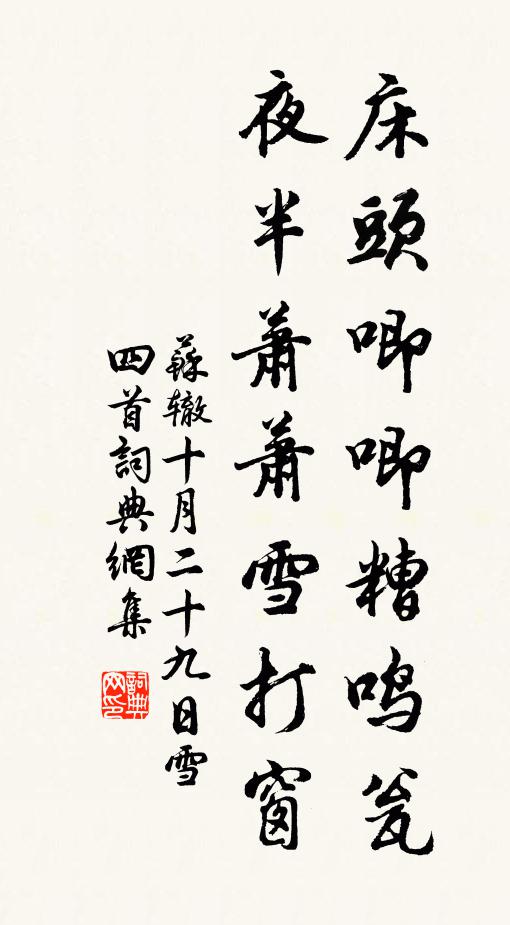 床頭唧唧糟鳴瓮
夜半蕭蕭雪打窗
蘇辙十月二十九日雪
四首詞典網集
詞典
网印